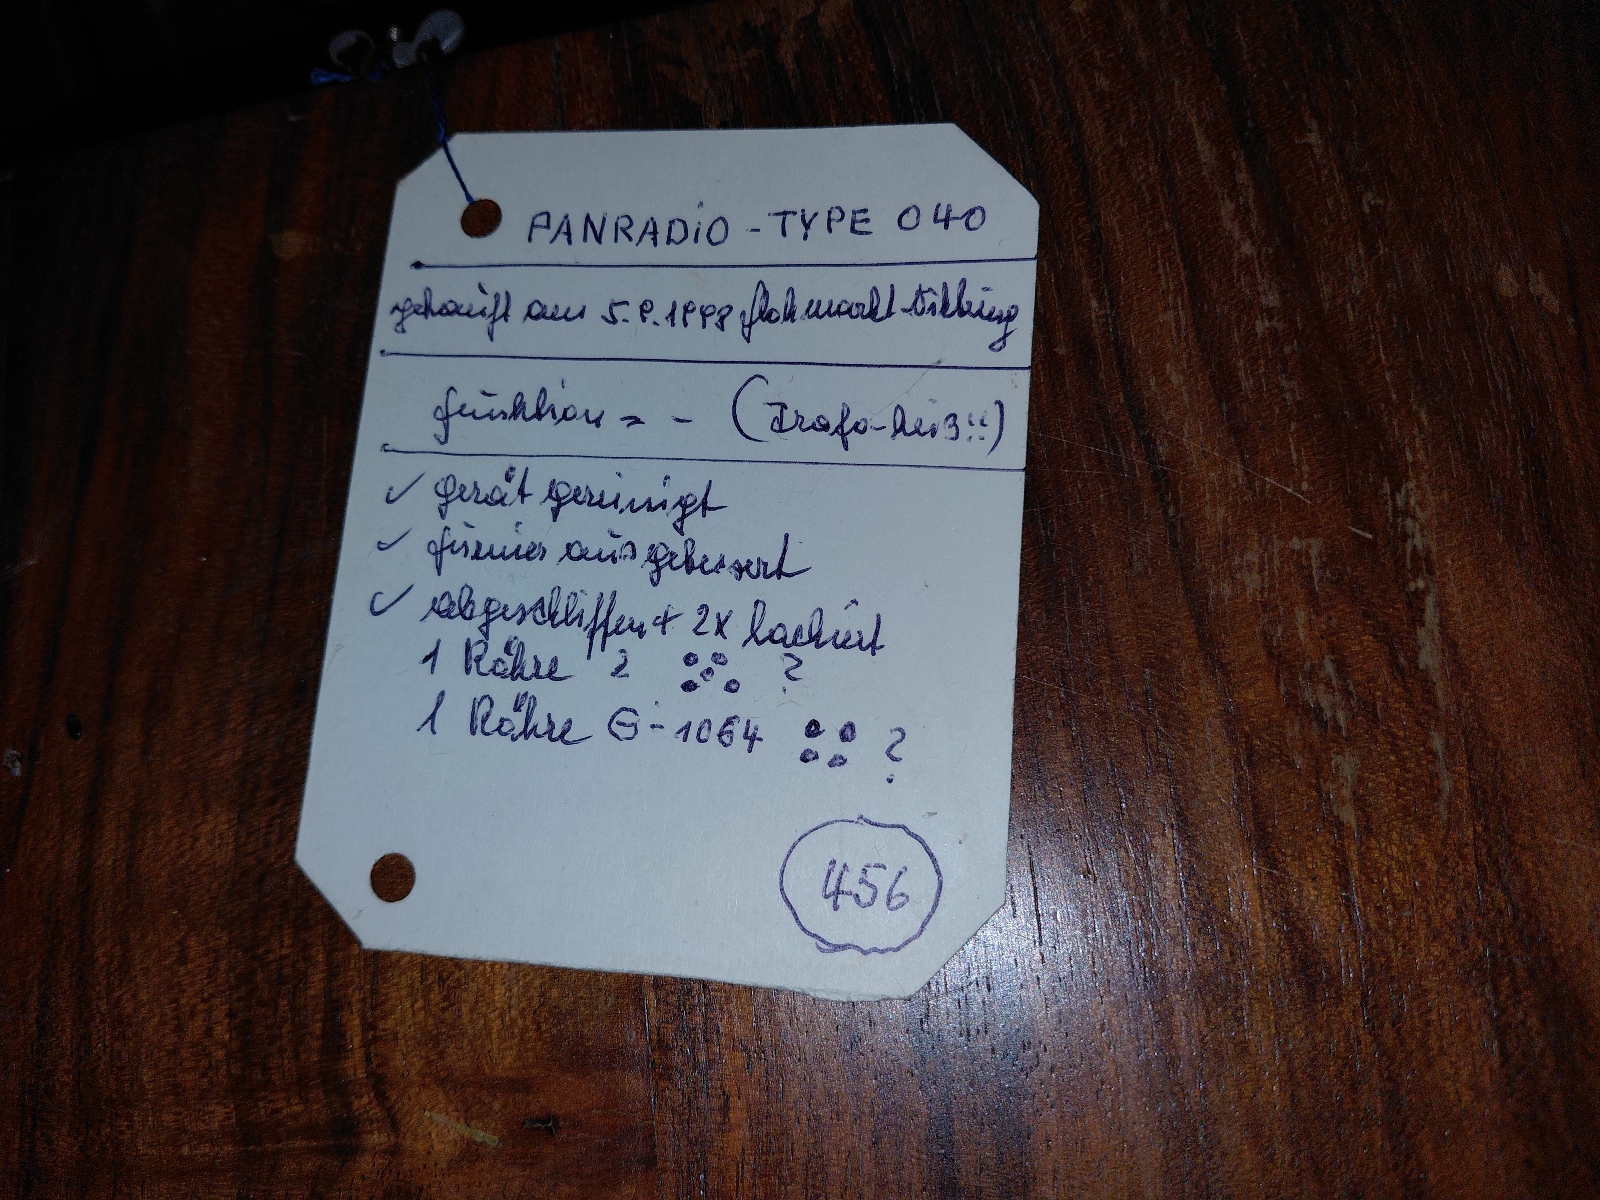 PANRADiO - TYPE 040
gekauft am 5.9.1998 flohmarkt
funktion = - (Trafo-heiß!!)
✓ gerät gereinigt
✓ furnier ausgebessert
✓ abgeschliffen + 2x lackiert
1 Röhre ?
1 Röhre G-1064 ?
456